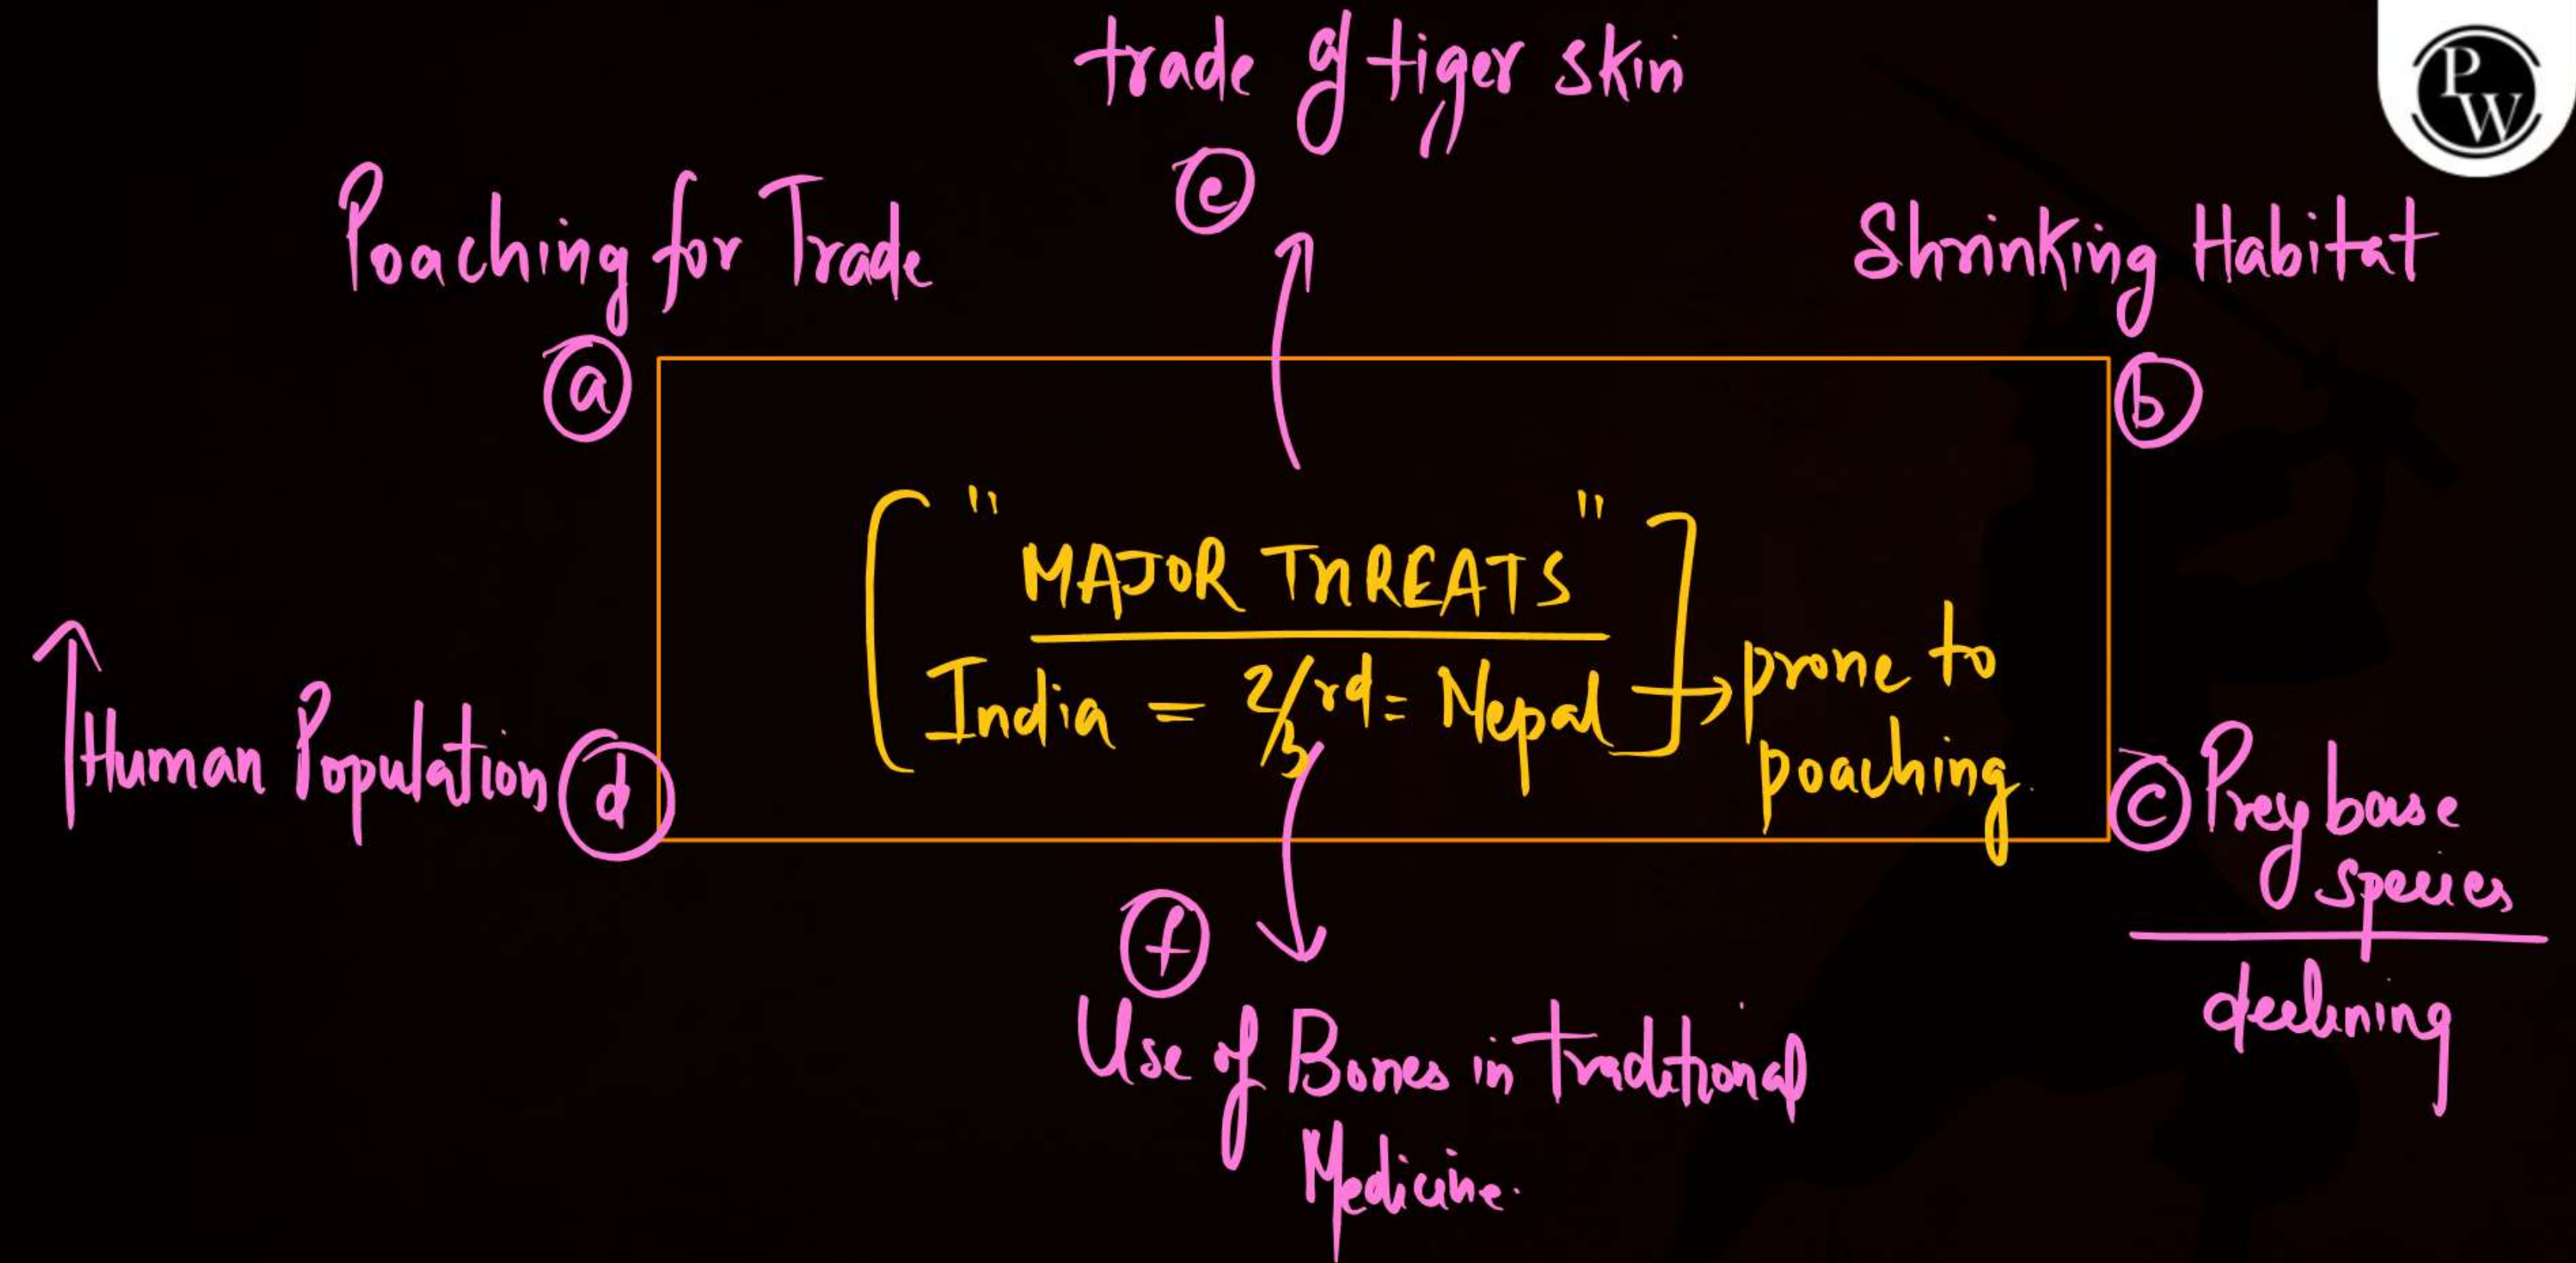 trade of tiger skin
e
Poaching for Trade
a
Shrinking Habitat
b
"MAJOR THREATS"
India = 2/3rd = Nepal → prone to
poaching.
↑ Human Population d
c Prey base
species
declining
f
Use of Bones in traditional
Medicine.
PW